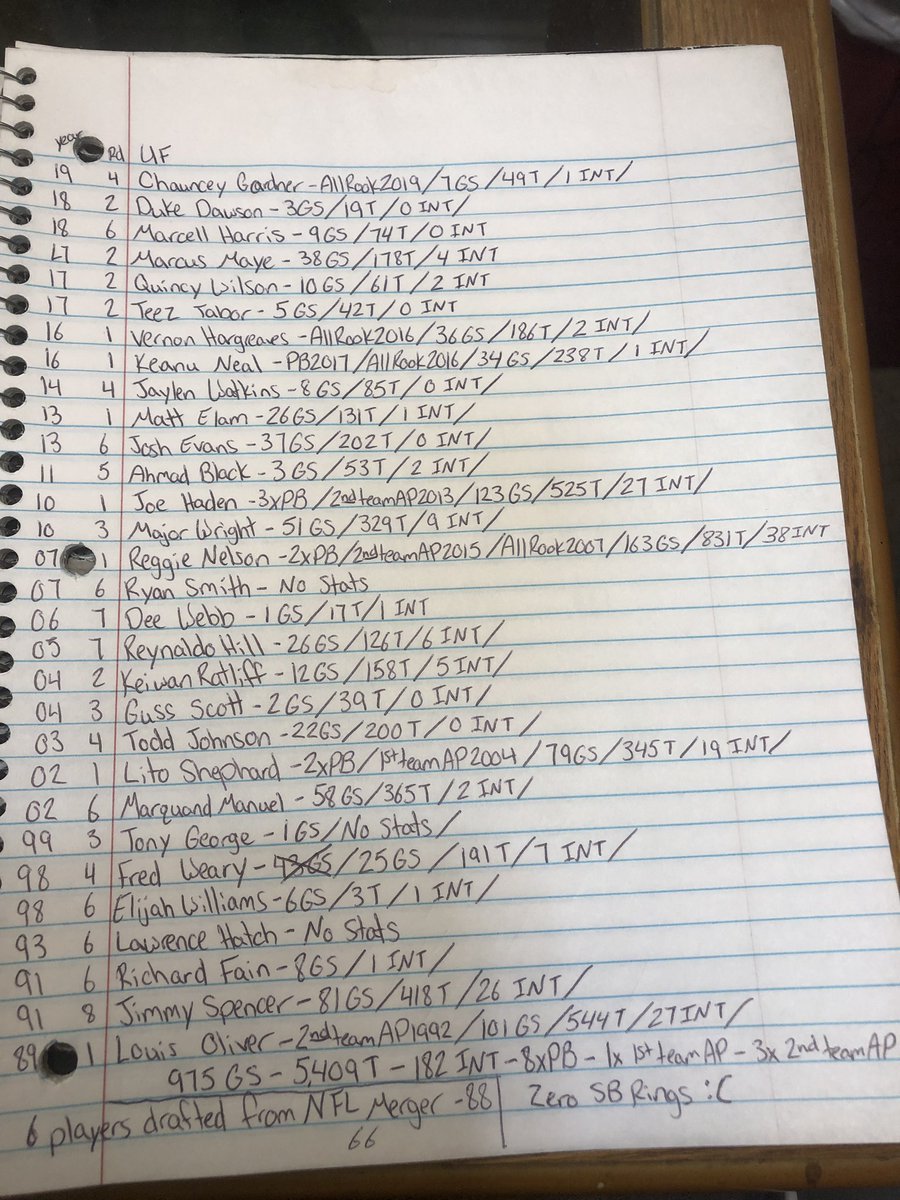 year Rd UF
19 4 Chauncey Gardner - AllRook2019/7GS/49T/1 INT/
18 2 Duke Dawson - 3GS/19T/0 INT/
18 6 Marcell Harris - 9GS/74T/0 INT
17 2 Marcus Maye - 38GS/178T/4 INT
17 2 Quincy Wilson - 10GS/61T/2 INT
17 2 Teez Tabor - 5GS/42T/0 INT
16 1 Vernon Hargreaves - AllRook2016/36GS/186T/2 INT/
16 1 Keanu Neal - PB2017/AllRook2016/34GS/238T/1 INT/
14 4 Jaylen Watkins - 8GS/85T/0 INT/
13 1 Matt Elam - 26GS/131T/1 INT/
13 6 Josh Evans - 37GS/202T/0 INT/
11 5 Ahmad Black - 3GS/53T/2 INT/
10 1 Joe Haden - 3xPB/2ndteamAP2013/123GS/525T/27 INT/
10 3 Major Wright - 51GS/329T/9 INT/
07 1 Reggie Nelson - 2xPB/2ndteamAP2015/AllRook2007/163GS/831T/38INT
07 6 Ryan Smith - No Stats
06 7 Dee Webb - 1GS/17T/1 INT
05 7 Reynaldo Hill - 26GS/126T/6 INT/
04 2 Keiwan Ratliff - 12GS/158T/5INT/
04 3 Guss Scott - 2GS/39T/0 INT/
03 4 Todd Johnson - 22GS/200T/0 INT/
02 1 Lito Shephard - 2xPB/1stteamAP2004/79GS/345T/19 INT/
02 6 Marquand Manuel - 58GS/365T/2 INT/
99 3 Tony George - 1GS/No Stats/
98 4 Fred Weary - 73GS/25GS/191T/7 INT/
98 6 Elijah Williams - 6GS/3T/1 INT/
93 6 Lawrence Hatch - No Stats
91 6 Richard Fain - 8GS/1 INT/
91 8 Jimmy Spencer - 81GS/418T/26 INT/
89 1 Louis Oliver - 2ndteamAP1992/101GS/544T/27INT/
975 GS - 5,409T - 182 INT - 8xPB - 1x 1stteamAP - 3x 2ndteamAP
6 players drafted from NFL Merger - 88 | Zero SB Rings :C
66